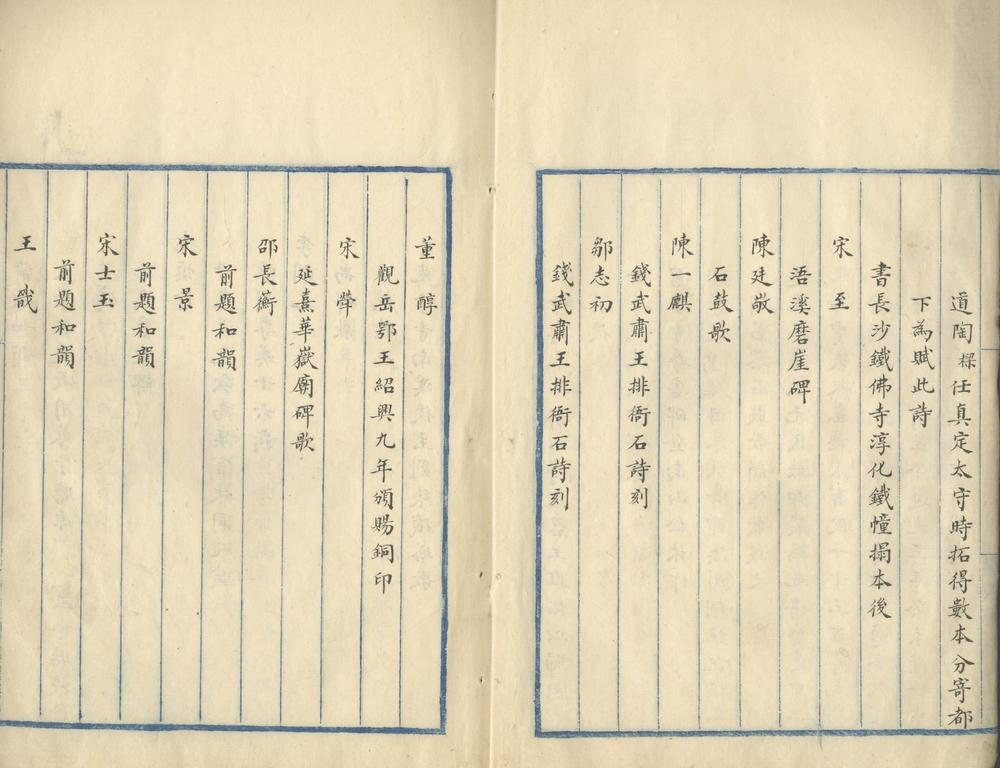 道陶樑任真定太守時拓得數本分寄都
下為賦此詩
書長沙鐵佛寺淳化鐵幢搨本後
宋至
浯溪磨崖碑
陳廷敬
石鼓歌
陳一麒
錢武肅王排衙石詩刻
鄒志初
錢武肅王排衙石詩刻
董醇
觀岳鄂王紹興九年頒賜銅印
宋犖
延熹華嶽廟碑歌
邵長蘅
前題和韻
宋景
前題和韻
宋士玉
前題和韻
王戩